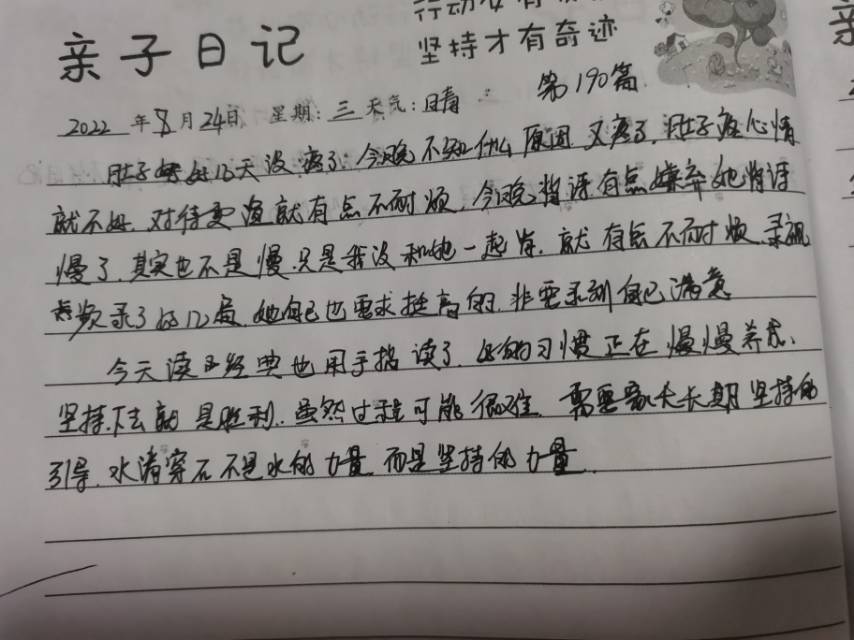 行动
坚持才有奇迹
亲子日记
第190篇
2022年8月24日 星期:三 天气:晴
肚子好几天没疼了,今晚不知什么原因又疼了,肚子疼心情
就不好,对待就有点不耐烦,今晚背诗有点嫌弃她背诗
慢了,其实也不是慢,只是我没和她一起背,就有点不耐烦,录视
频录了好几遍,她自己也要求挺高的,非要录到自己满意
今天读经典也用手指读了,好的习惯正在慢慢养成,
坚持下去就是胜利,虽然过程可能很难,需要家长长期坚持的
引导,水滴穿石不是水的力量,而是坚持的力量.